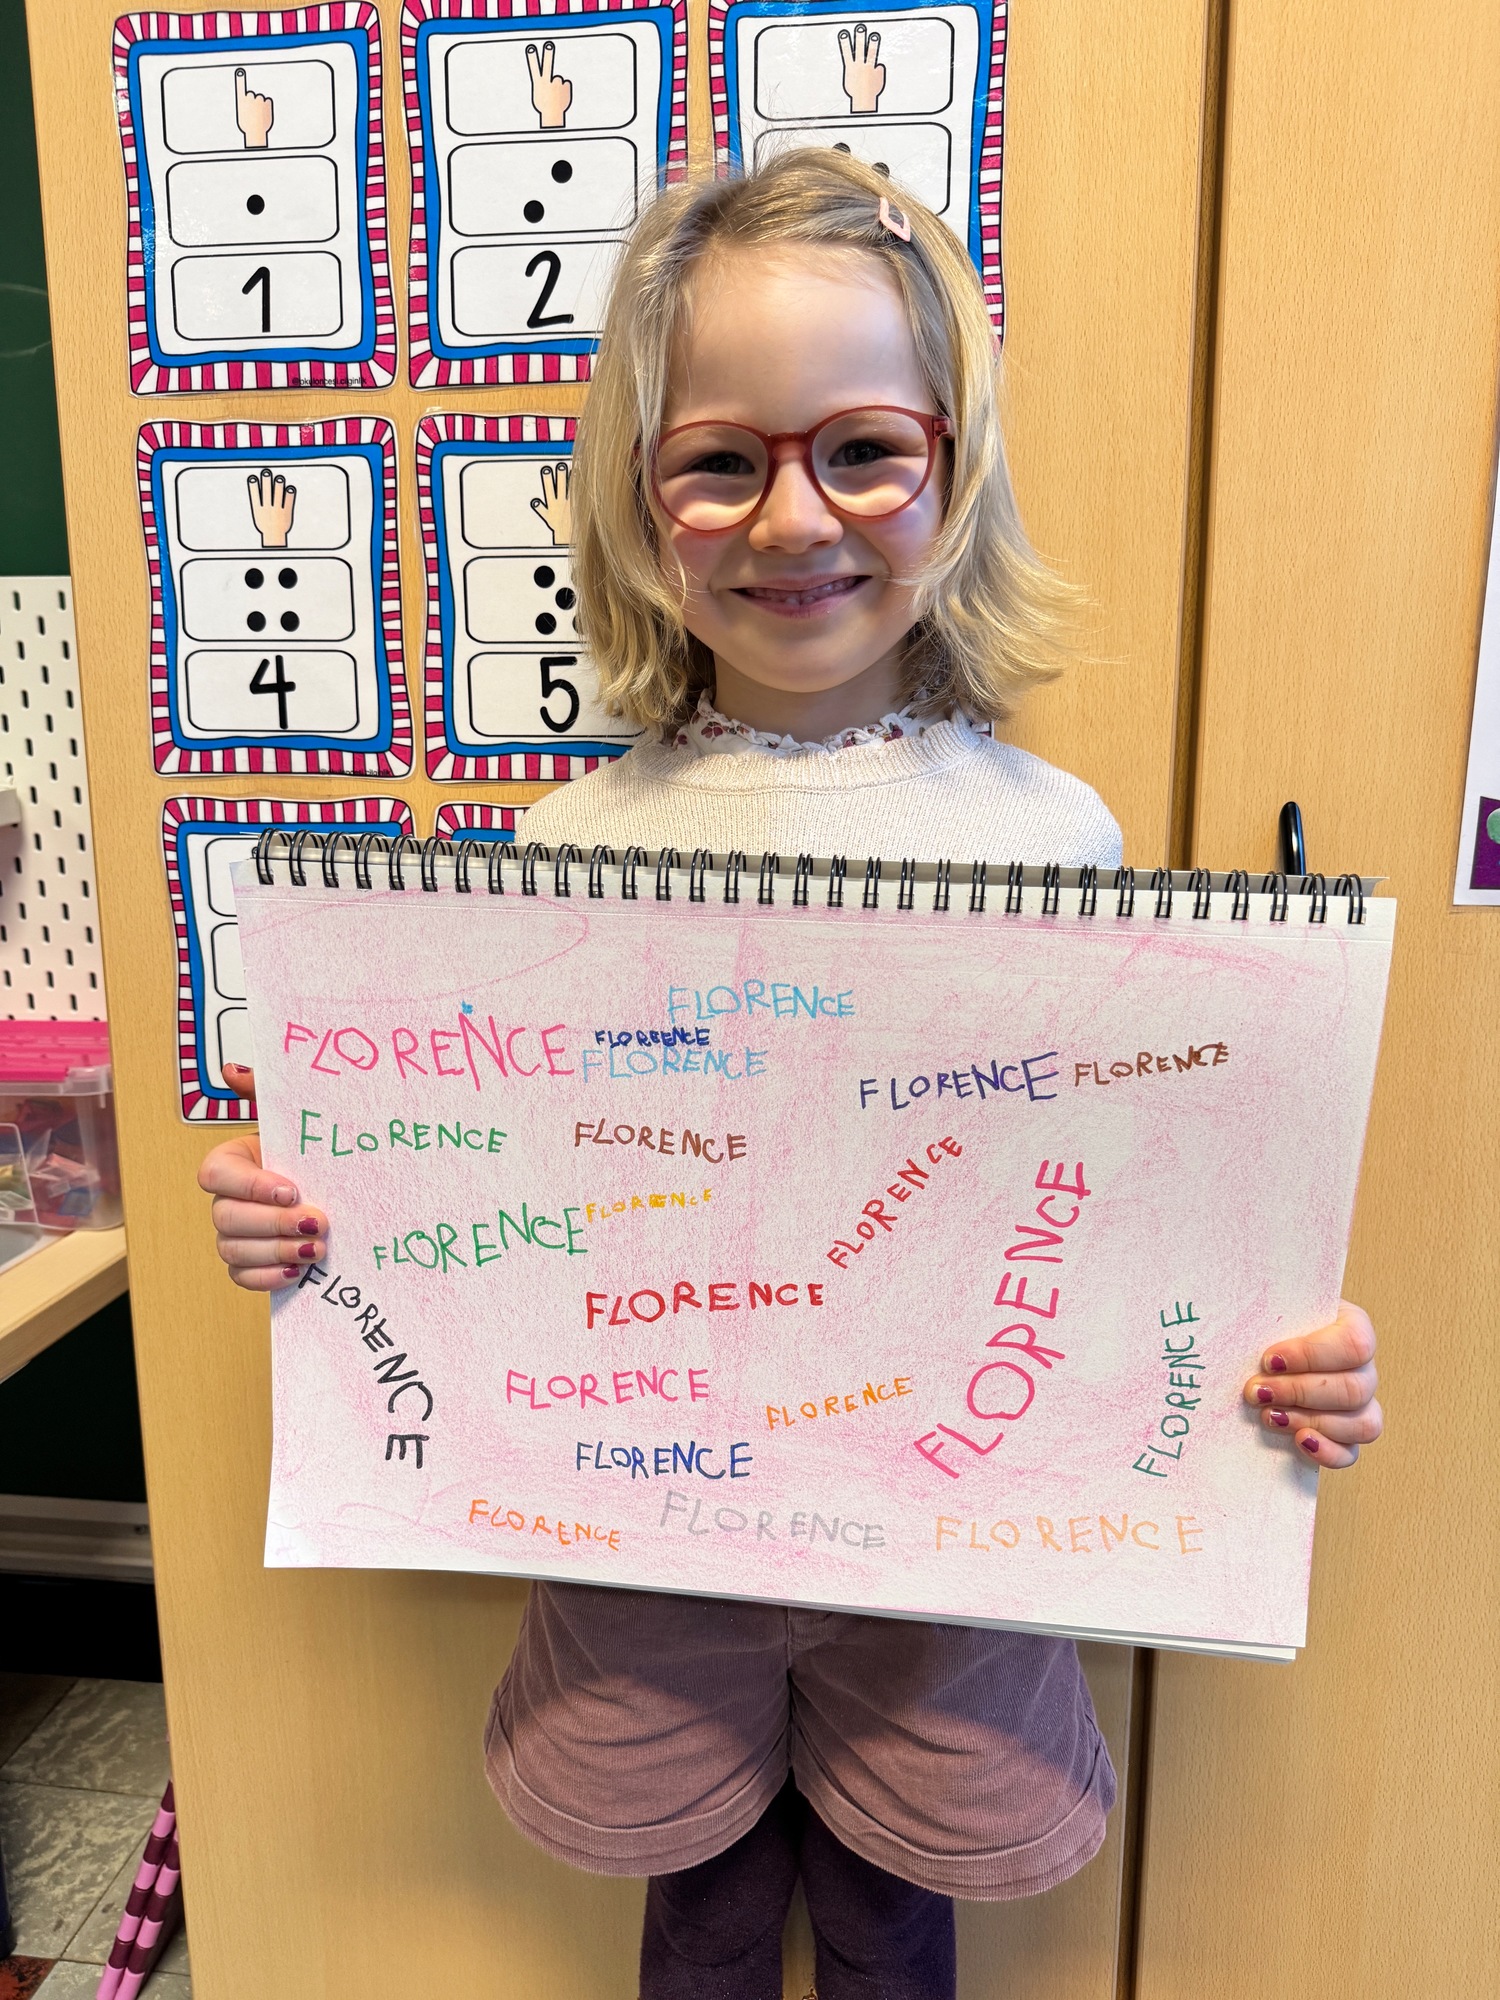 1
2
@okuloncesi.cilginlik
4
5
FLORENCE
FLORENCE
FLOREENCE
FLORENCE
FLORENCE
FLORENCE
FLORENCE
FLORENCE
FLORENCE
FLORENCE
FLORENCE
FLORENCE
FLORENCE
FLORENCE
FLORENCE
FLORENCE
FLORENCE
FLORENCE
FLORENCE
FLORENCE
FLORENCE
FLORENCE